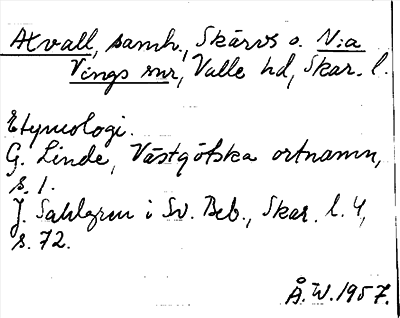 Axvall, samh., Skärvs o. N:a
Vings snr, Valle hd, Skar. l.
Etymologi.
G. Linde, Västgötska ortnamn,
s. 1.
J. Sahlgren i Sv. Beb., Skar. l. 4,
s. 72.
Å. W. 1957.